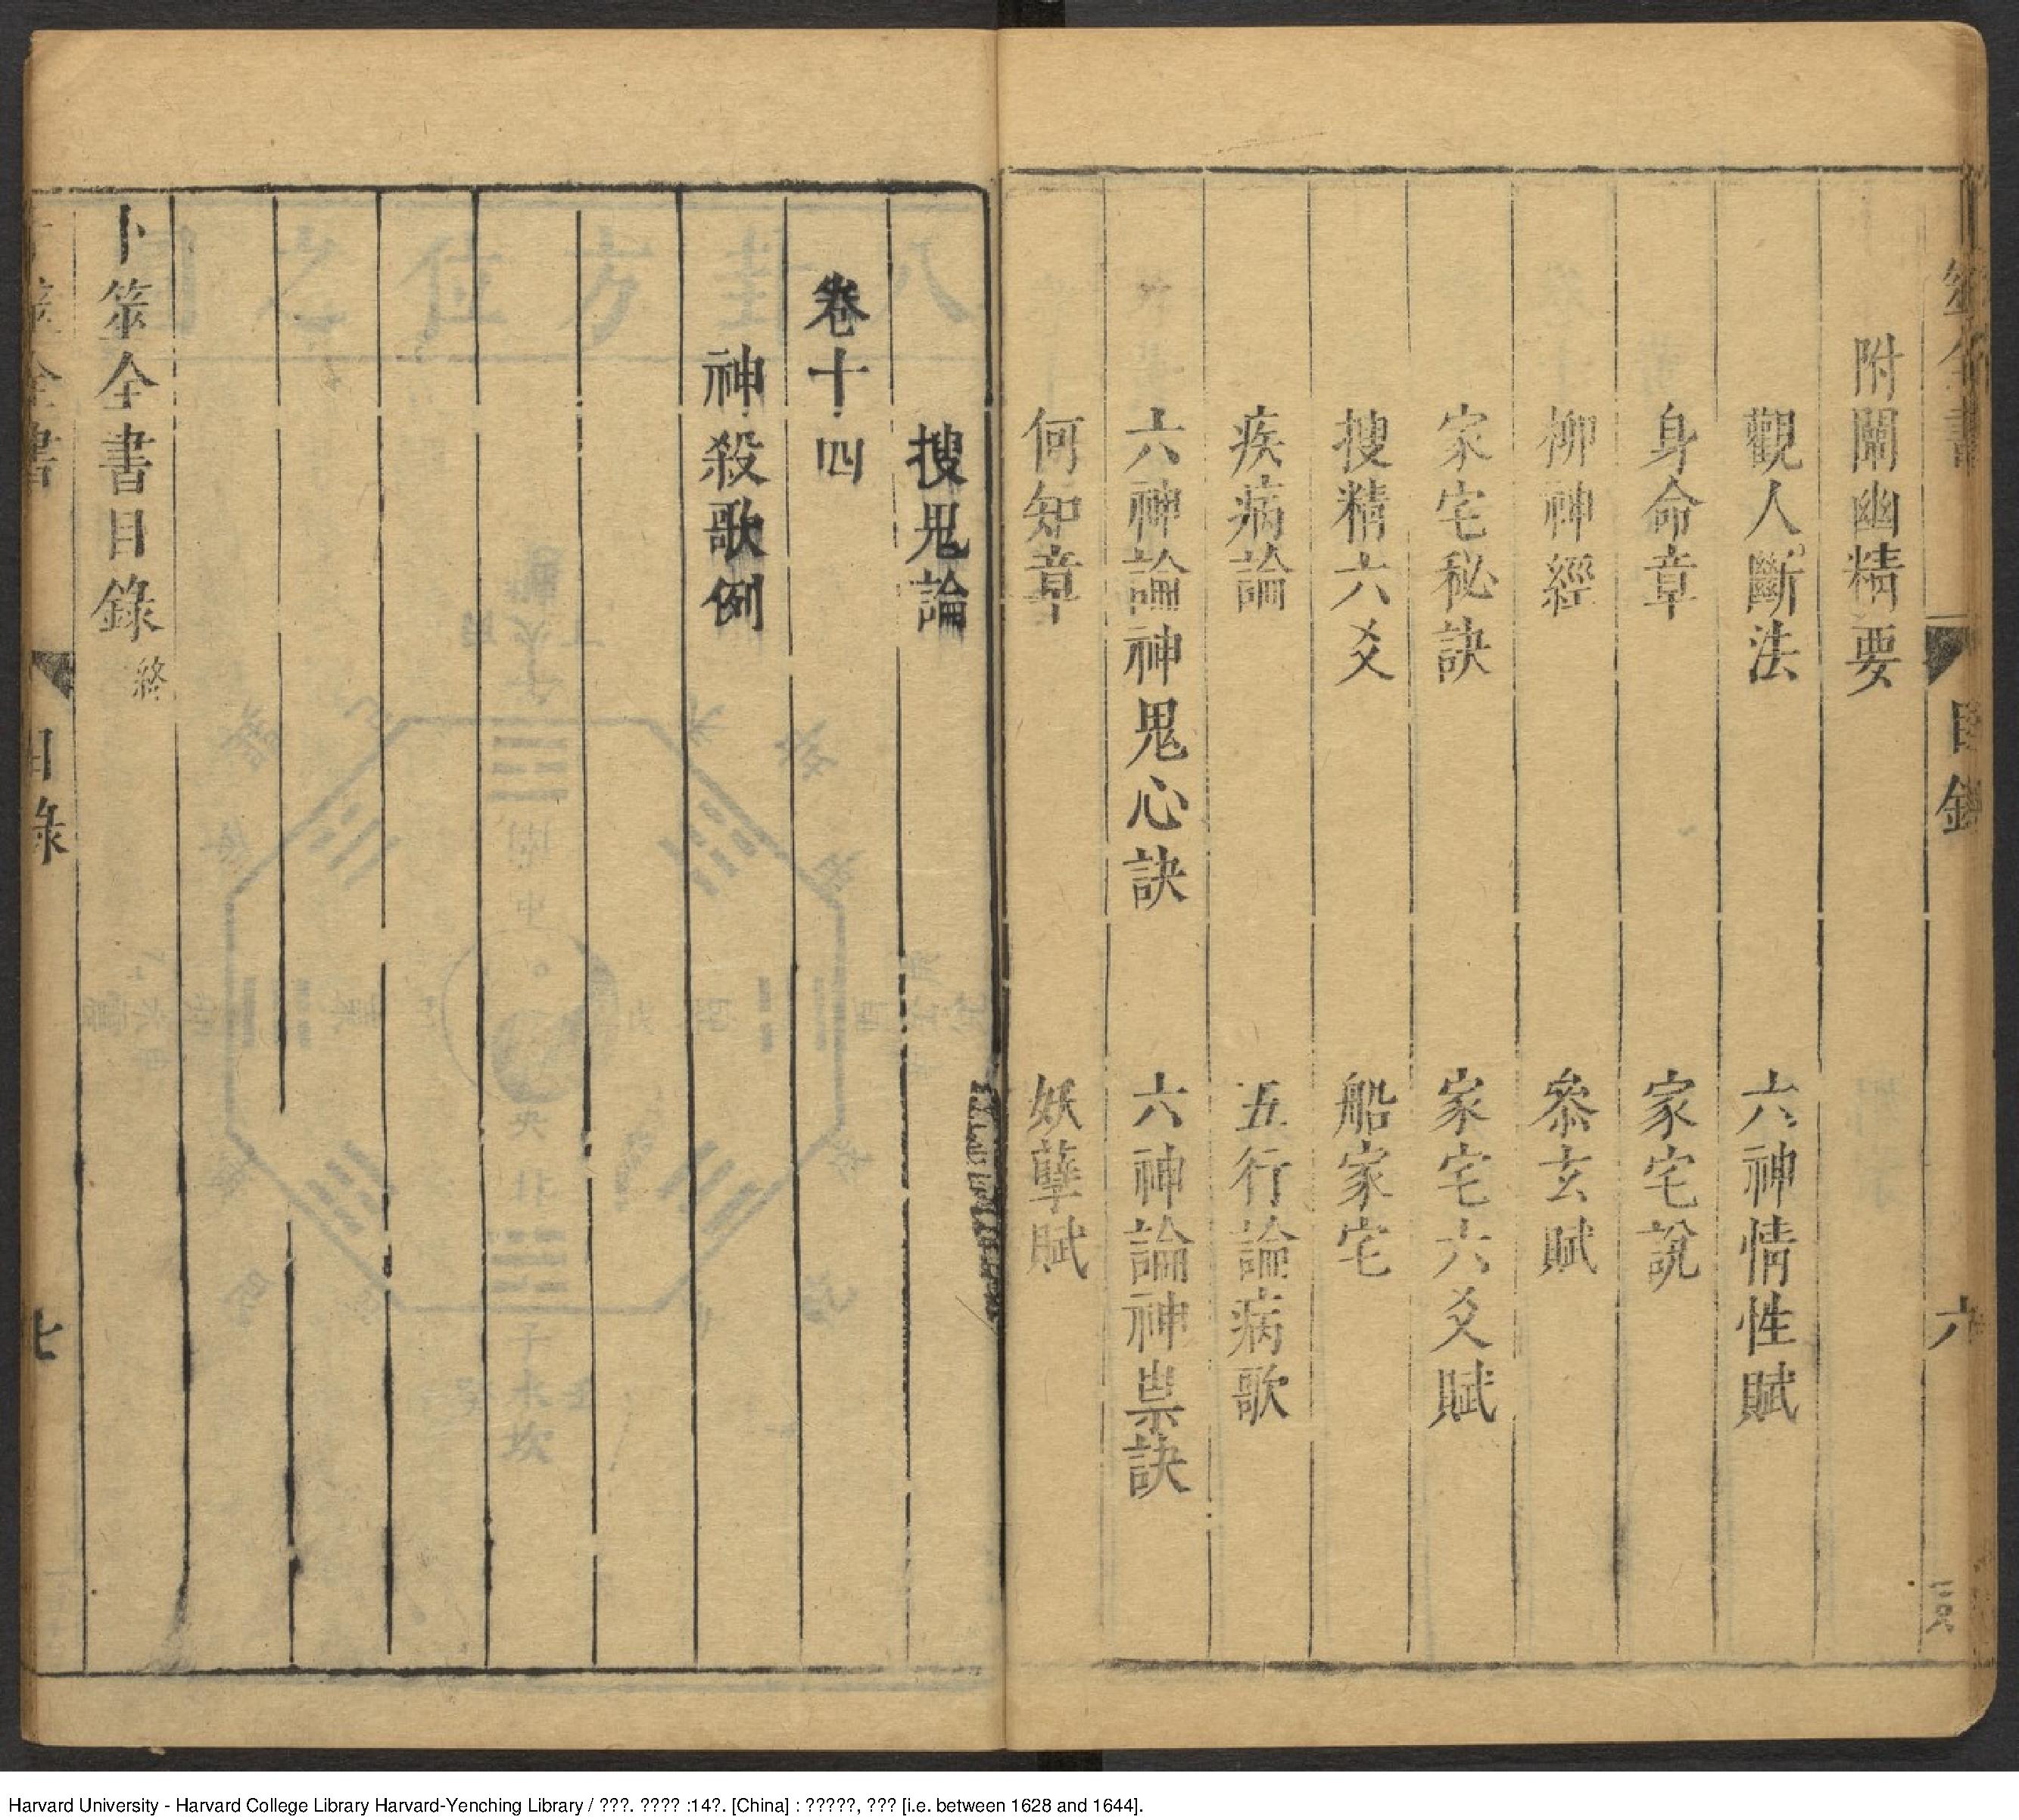 附闡幽精要
觀人斷法 六神情性賦
身命章 家宅說
柳神經 叅玄賦
家宅秘訣 家宅六爻賦
搜精六爻 船家宅
疾病論 五行論病歌
六神論神鬼心訣 六神論神祟訣
何知章 妖孽賦
目錄 六
搜鬼論
卷十四
神殺歌例
卜筮全書目錄 終
全書 目錄 七
Harvard University - Harvard College Library Harvard-Yenching Library / ???. ???? :14?. [China] : ?????, ??? [i.e. between 1628 and 1644].